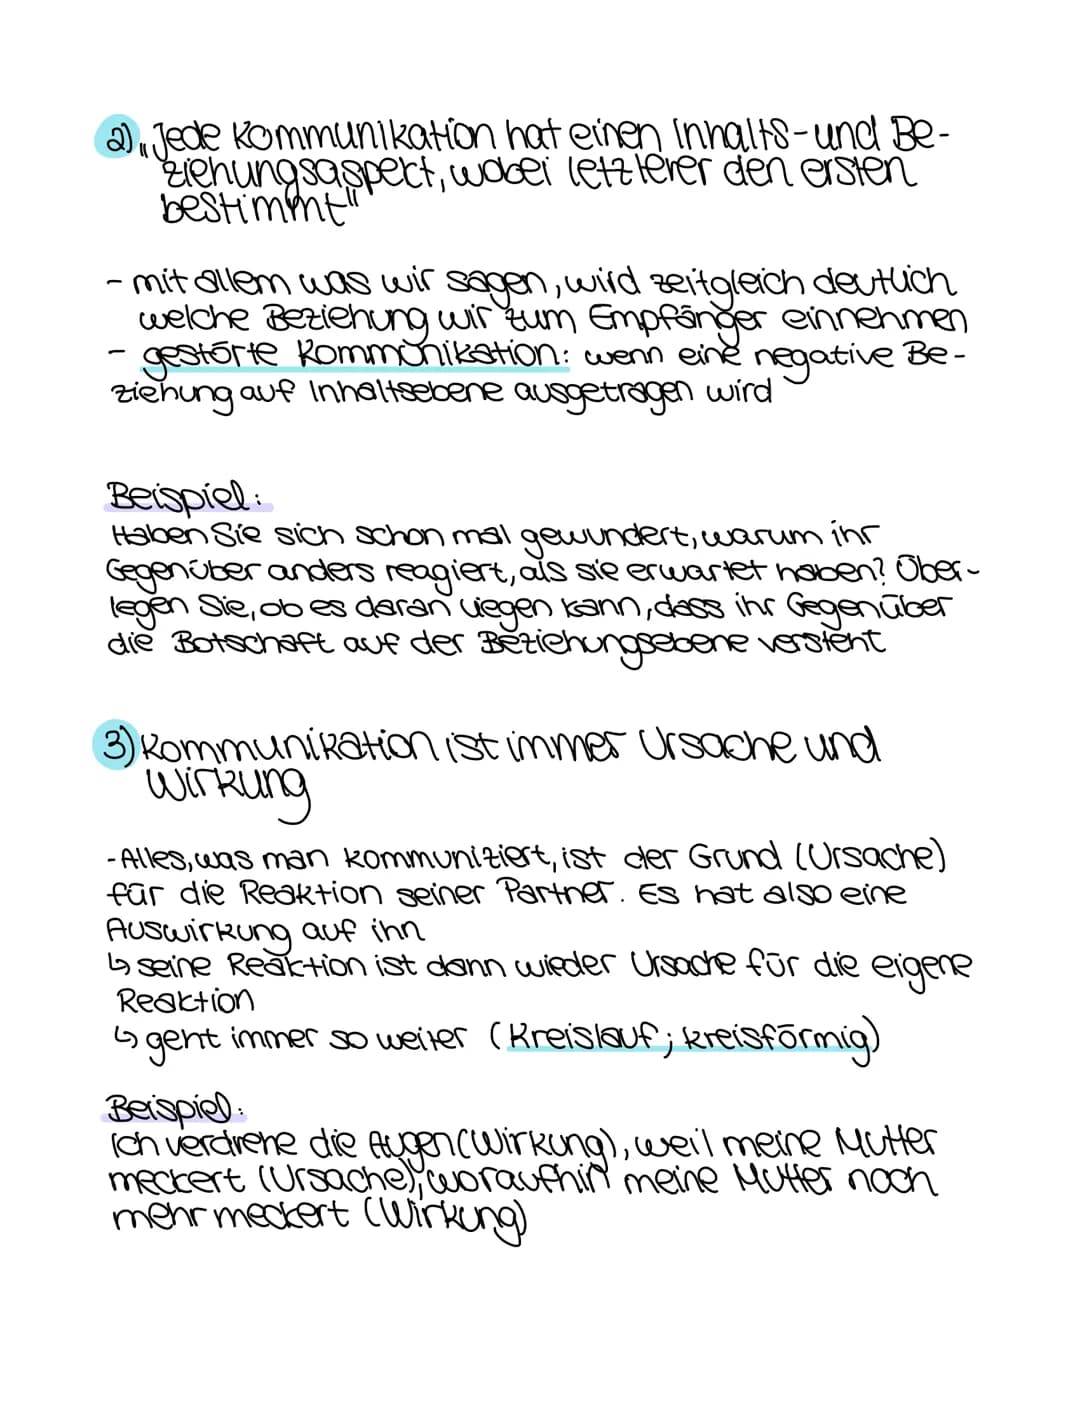 2) „Jede Kommunikation hat einen Inhalts- und Be-
ziehungsaspekt, wobei letzterer den ersten
bestimmt"
- mit allem was wir sagen, wird zeitgleich deutlich
welche Beziehung wir zum Empfänger einnehmen
- gestörte Kommunikation: wenn eine negative Be-
ziehung auf Inhaltsebene ausgetragen wird
Beispiel:
Haben Sie sich schon mal gewundert, warum ihr
Gegenüber anders reagiert, als sie erwartet haben? Über-
legen Sie, ob es daran liegen kann, dass ihr Gegenüber
die Botschaft auf der Beziehungsebene versteht
3) Kommunikation ist immer Ursache und
Wirkung
- Alles, was man kommuniziert, ist der Grund (Ursache)
für die Reaktion seiner Partner. Es hat also eine
Auswirkung auf ihn
↳ seine Reaktion ist dann wieder Ursache für die eigene
Reaktion
↳ geht immer so weiter (Kreislauf; kreisförmig)
Beispiel:
Ich verdrehe die Augen (Wirkung), weil meine Mutter
meckert (Ursache), woraufhin meine Mutter noch
mehr meckert (Wirkung)